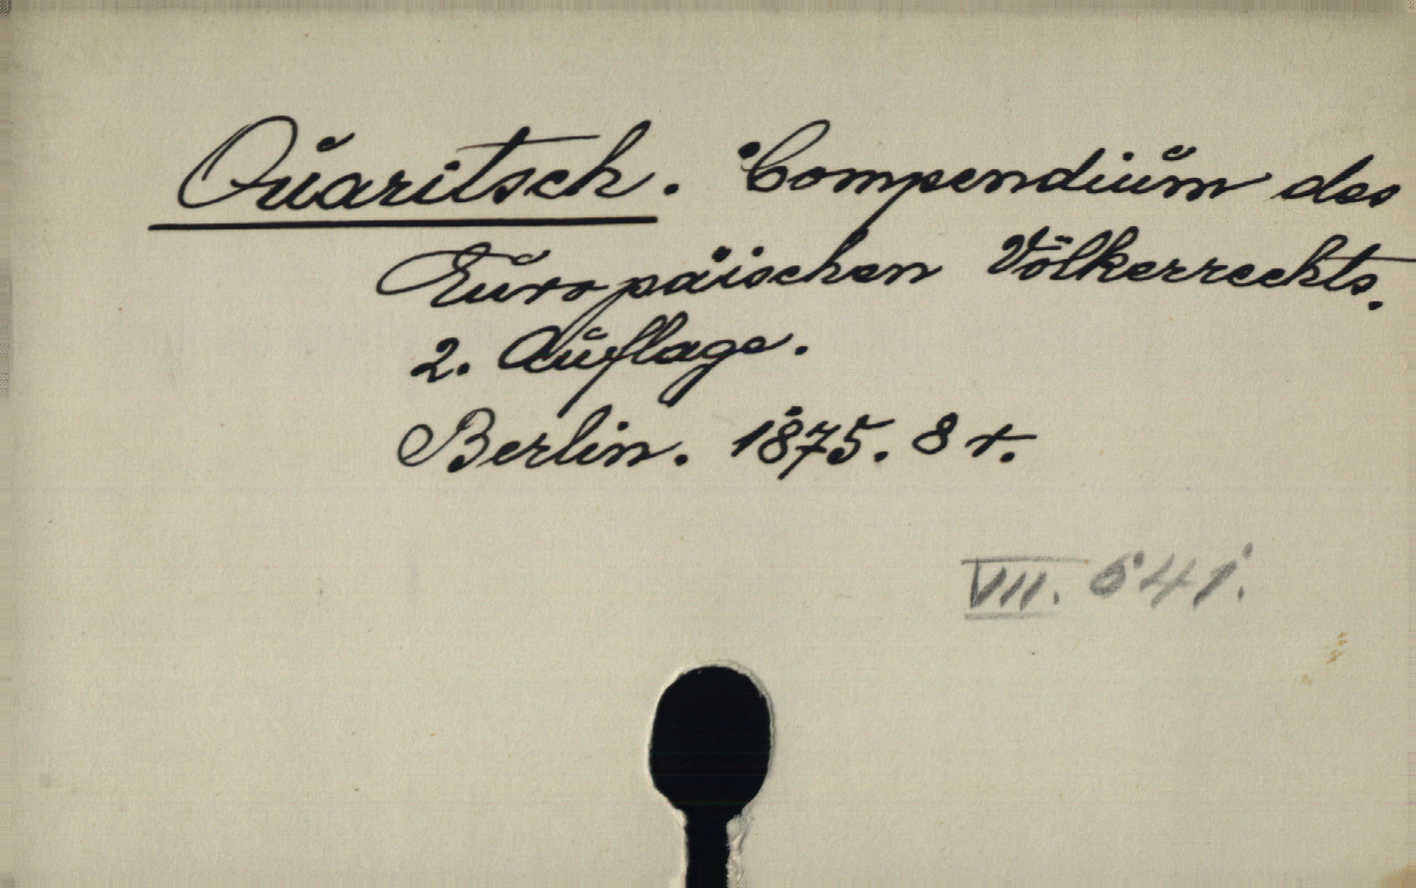 Quaritsch. Compendium des
Europäischen Völkerrechts.
2. Auflage.
Berlin. 1875. 8 t.
VII. 641.